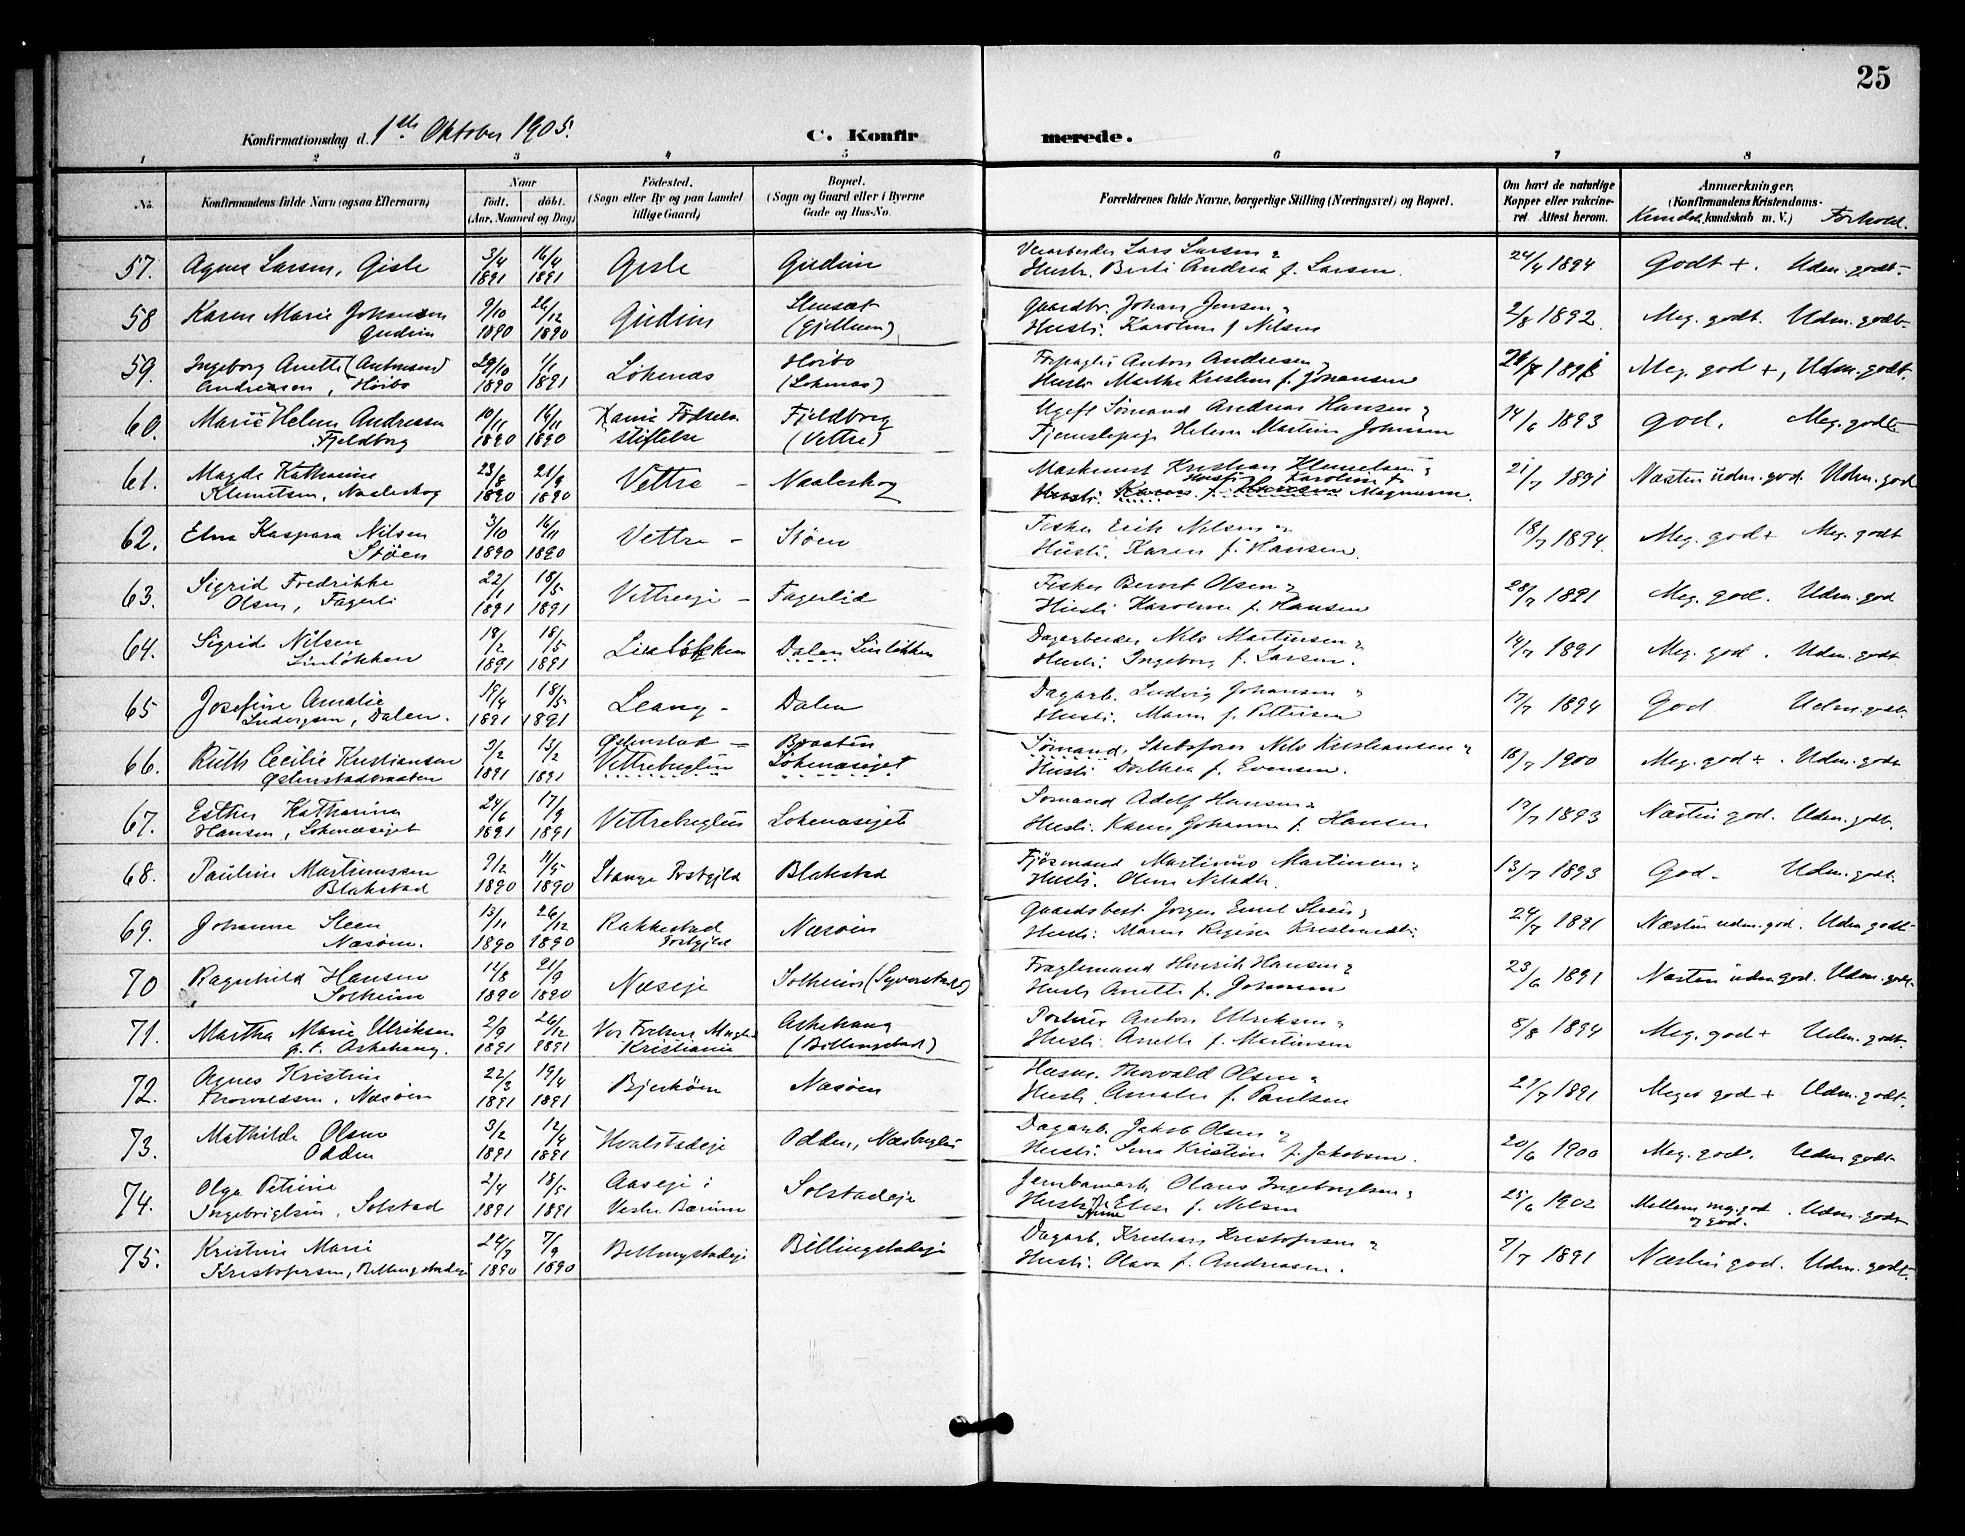 25
Konfirmationsdag d. 1ste Oktober 1905.
C. Konfirmerede.
1 2 3 4 5 6 7 8
No. Konfirmandens fulde Navn (ogsaa Efternavn) Naar født. døbt. (Aar, Maaned og Dag) Fødested. (Sogn eller By og paa Landet tillige Gaard) Bopæl. (Sogn og Gaard eller i Byerne Gade og Hus-No. Forældrenes fulde Navne, borgerlige Stilling (Næringsvei) og Bopæl. Om havt de naturlige Kopper eller vaccineret. Attest herom. Anmærkninger. (Konfirmandens Kristendomskundskab m. V.) Kundsk. Forhold.
57. Agnes Larsen, Gisle 3/4 1891 16/4 1891 Gisle Gudim Lars Larsen Hustr. Berti Andrea f. Larsen. 24/4 1894 Godt +. Udm. godt.
58 Karen Marie Johansen Gudim 9/10 1890 26/12 1890 Gudim (Gjellum) Gaardbr. Johan Jensen Hustr. Karoline f. Nilsen 2/8 1892. Meg. godt. Udm. godt
59. Ingeborg Anette (Antonsen) Andreasen, Høibo 29/10 1890 1/1 1891 Løkenæs Høibo (Løkenæs) Anton Andresen Hustr. Marthe Kristine f. Johansen Meg. god +, Udm. godt.
60. Marie Helene Andreasen Fjeldborg 10/11 1890 16/11 1890 Kra. Fødselsstiftelse Fjeldborg (Vettre) Ugift Sømand Andreas Hansen Tjenestepige Helene Martine Johnsen 14/6 1893 god. Meg. godt
61. Magda Katharine Klemetsen, Naaleskog 23/8 1890 21/9 1890 Vettre – Naaleskog Maskinist Kristian Klemetsen Hustr. Karoline f. Magnusen. 21/7 1891 Næsten udm. god. Udm. god
62. Elna Kaspara Nilsen Støen 3/10 1890 16/11 1890 Vettre – Støen Fisker Erik Nilsen Hustr. Karen f. Hansen. 18/7 1894. Meg. god + Meg. godt
63. Sigrid Fredrikke Olsen, Fagerli 22/1 1891 18/5 1891 Vettreeje – Fagerlid Fisker Bernt Olsen Hustr. Karoline f. Hansen 28/7 1891 Meg. god. Udm. god
64. Sigrid Nilsen Linløkken 19/2 1891 18/5 1891 Linløkken Dalen Linløkken Dagarbeider Nils Martinsen Hustr. Ingeborg f. Larsen. 14/7 1891 Meg. god. Udm. godt
65 Josefine Amalie Ludvigsen, Dalen. 19/4 1891 18/5 1891 Leang – Dalen Dagarb. Ludvig Johansen Hustr. Maren f. Pettersen 17/7 1894 God Udm. godt.
66. Ruth Cecilie Kristiansen Østenstadbraaten 3/2 1891 13/2 1891 Østenstad – Vettrebugten Braaten Løkenæsejet Sømand, Skibsfører Nils Kristiansen Hustr. Dorthea f. Evensen. 18/7 1900 Meg. god +. Udm. godt
67. Esther Katharina Hansen, Løkenæsejet 24/6 1891 17/9 1891 Vettrebugten Løkenæsejet Sømand Adolf Hansen Hustr. Karen Johanne f. Hansen 17/7 1893 Næsten god. Udm. godt.
68. Pauline Martinussen Blakstad 9/2 1890 11/5 1890 Stange Prstgjld Blakstad Fjøsmand Martinus Martinsen Hustr. Oline Nilsdtr. 13/7 1893 God. Udm. godt.
69. Johanne Steen Næsøen. 13/11 1890 26/12 1890 Rakkestad Prstgjld Næsøen Gaardsbest. Jørgen Emil Steen Hustr. Maren Regine 24/7 1891 Næsten udm. god. Udm godt
70 Ragnhild Hansen Solheim 14/8 1890 21/9 1890 Næseje Solheim (Syverstad) Hinrik Hansen Hustr. Anette f. Johansen 23/6 1891 Næsten udm god. Udm. godt.
71. Martha Marie Ulriksen p.t. Askehaug. 2/9 1891 26/12 1891 Vor Frelsers Mgh. Kristiania Askehaug (Billingstad) Portnér Anton Ulriksen Hustr. Anette f. Martinsen 8/8 1894 Meg. god + Udm. godt.
72. Agnes Kristine Thorvaldsen, Næsøen 22/3 1891 19/4 1891 Bjerkøen Næsøen Husm. Thorvald Olsen Hustr. Amalie f. Paulsen 21/7 1891 Meget god + Udm. godt.
73. Mathilde Olsen Odden 3/2 1891 12/4 1891 Hvalstadeje Odden, Næsbugten Dagarb. Jakob Olsen Hustr. Lena Kristine f. Jakobsen. 20/6 1900 Meg. god. Udm godt
74. Olga Petrine Ingebrigtsen, Solstad 2/4 1891 18/5 1891 Aaseje i Vestre Bærum Solstadeje Olaus Ingebrigtsen Hustr. Elise f. Nilsen 25/6 1902 Mellem meg. god og god. Udm. godt
75. Kristine Marie Kristofersen, Billingstadeje 24/7 1890 7/9 1890 Billingstadeje Billingstadeje Dagarb. Kristian Kristofersen Hustr. Olava f. Andreasen. 7/7 1891 Næsten god. Udm. godt.